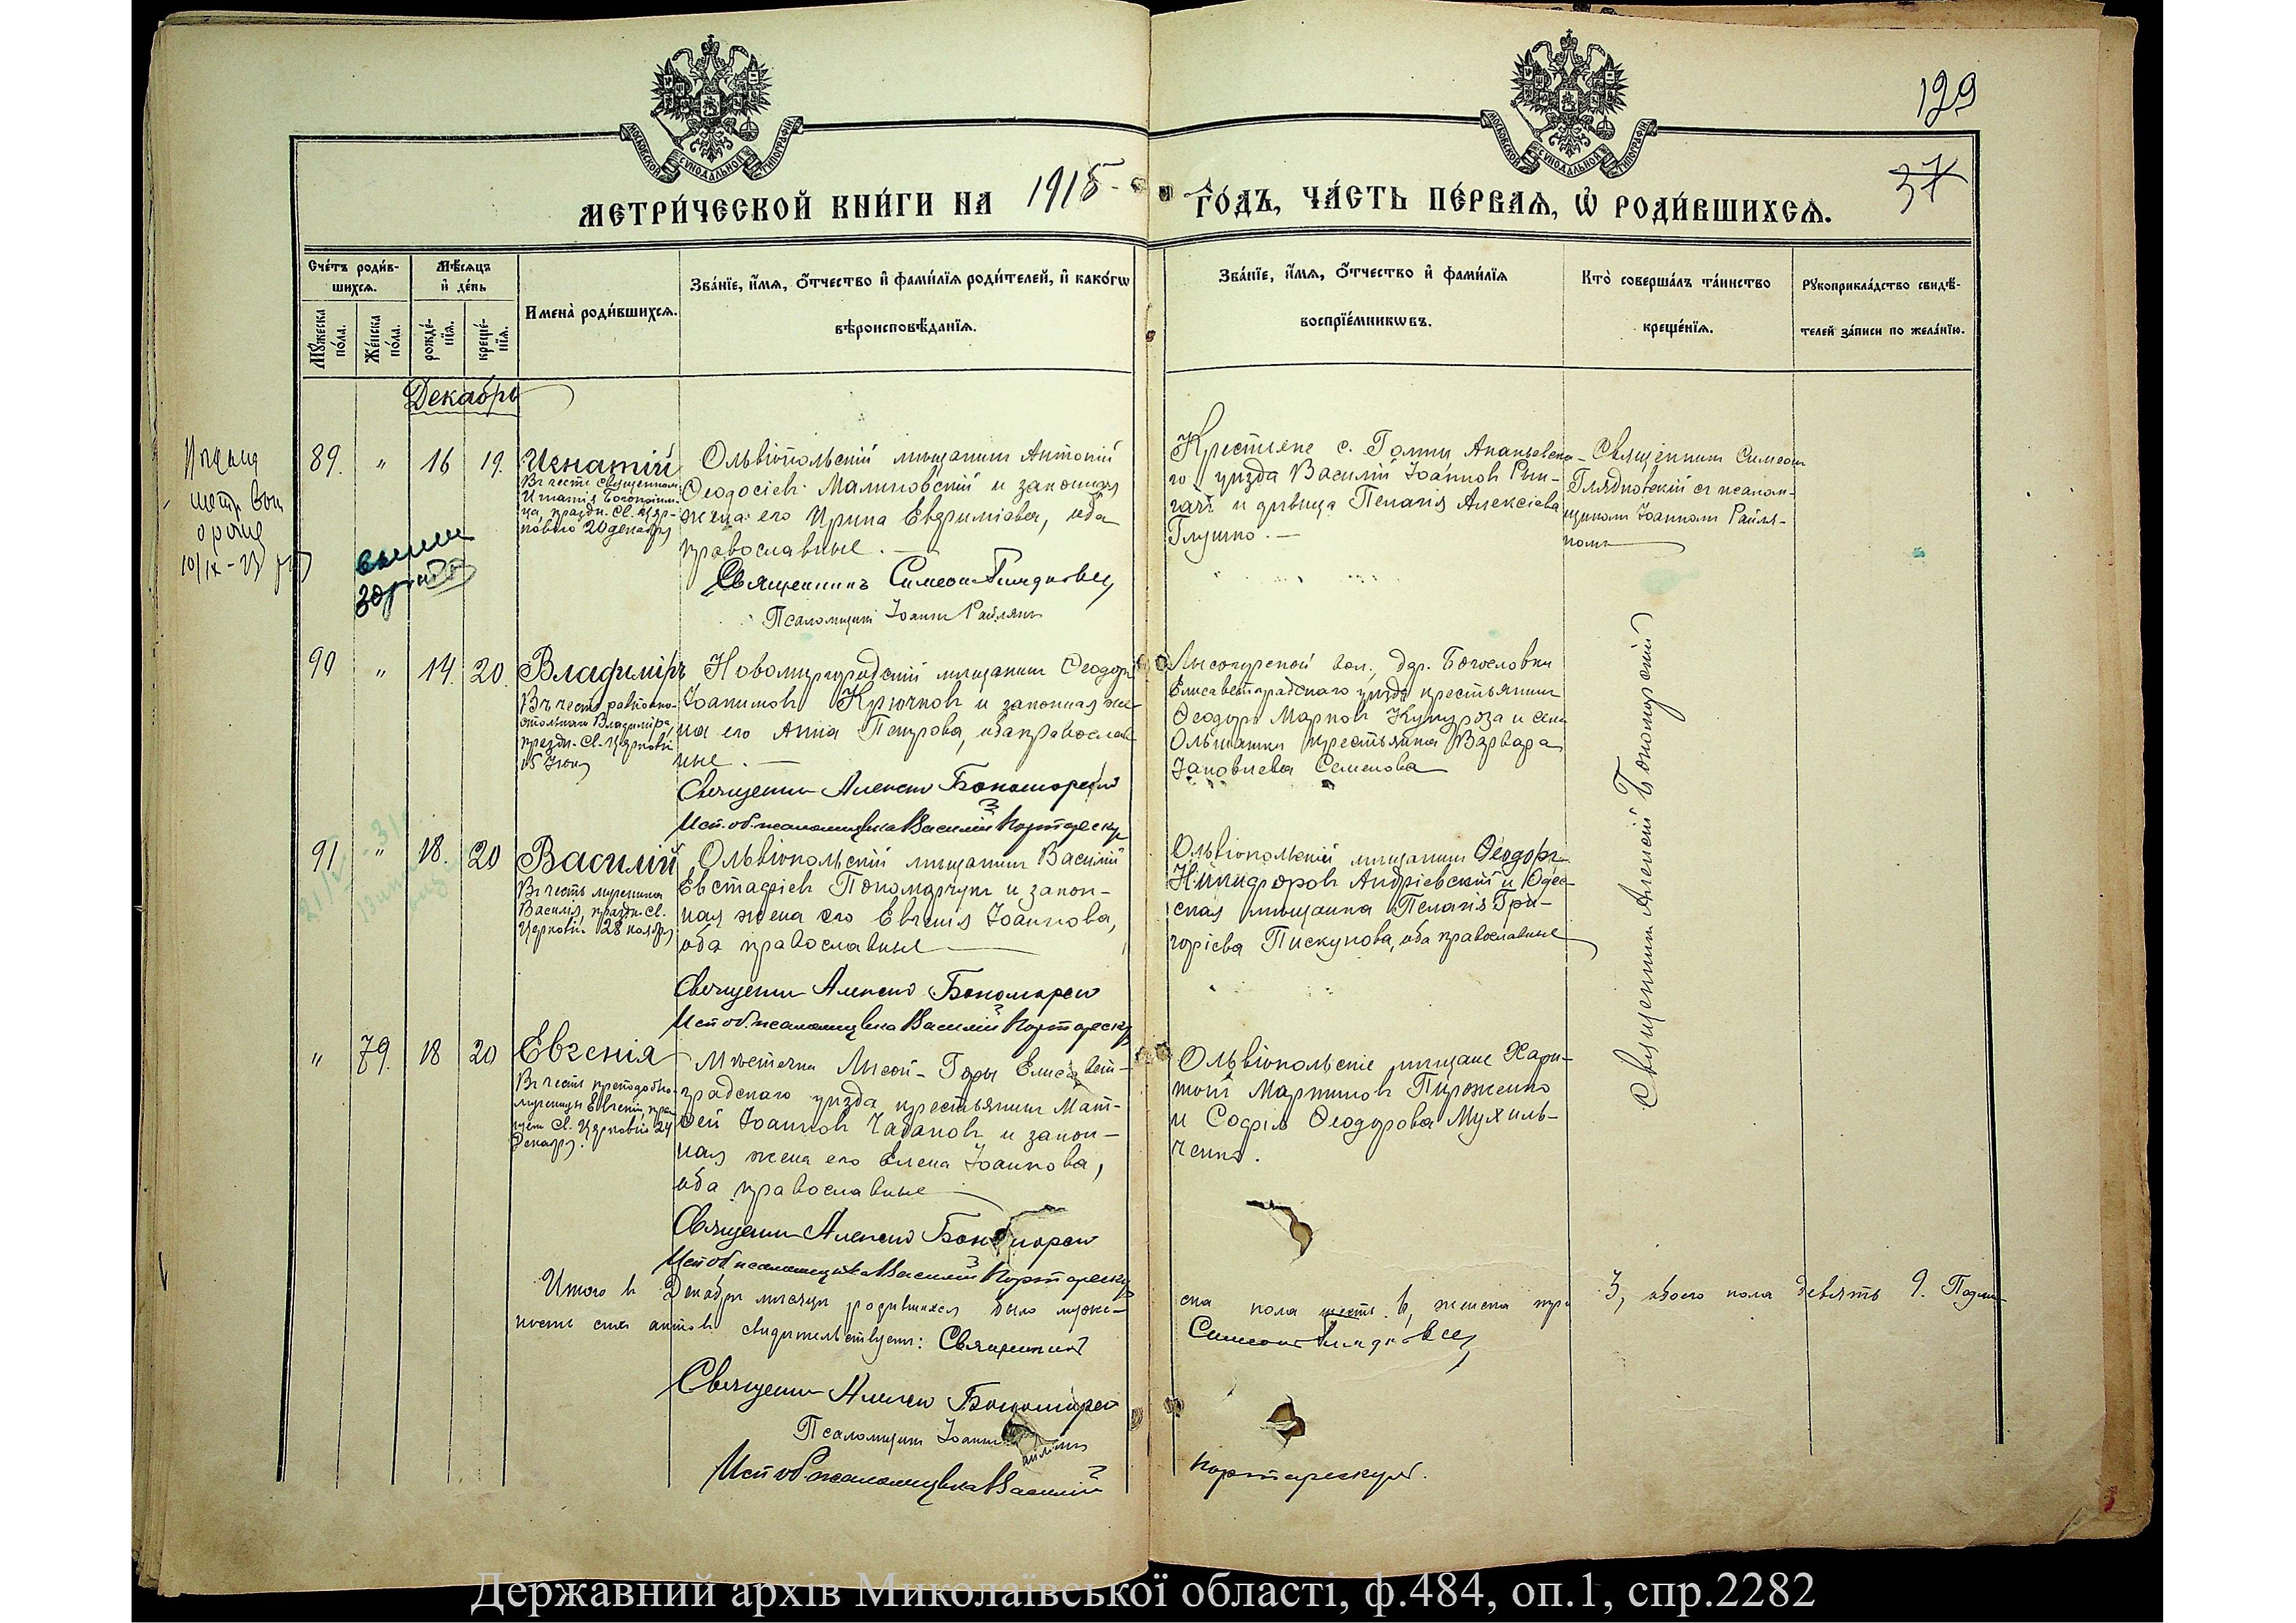 129
37
МОСКОВСКОЙ СѴНОДАЛЬНОЙ ТИПОГРАФІИ
МОСКОВСКОЙ СѴНОДАЛЬНОЙ ТИПОГРАФІИ
МЕТРИ́ЧЕСКОЙ КНИ́ГИ НА 1915 ГО́ДЪ, ЧА́СТЬ ПЕ́РВАЯ, Ѡ҆ РОДИ́ВШИХСЯ.
Сче́тъ роди́в-
шихся.
Мѣ́сяцъ
и҆ де́нь
Мꙋ́жеска
по́ла.
Же́нска
по́ла.
рожде́-
нїѧ.
креще́-
нїѧ.
Имена̀ роди́вшихся.
Зва́нїе, и҆́мя, Ѻ҆́тчество и҆ фами́лїя роди́телей, и҆ како́гѡ
вѣроисповѣ́данїя.
Зва́нїе, и҆́мя, Ѻ҆́тчество и҆ фами́лїя
воспрїе́мникѡвъ.
Кто̀ соверша́лъ та́инство
креще́нїя.
Рꙋкоприкла́дство свидѣ́-
телей за́писи по жела́нїю.
Декабрь
89. " 16 19. Игнатій
Въ честь священном.
Игнатія Богоносца
празdн. Св. Цер-
ковію 20 декабря
Ольвіопольскій мѣщанинъ Антоній
Ѳеодосіевъ Малиновскій и законная
жена его Ирина Евѳиміева, оба
православные.
Священникъ Симеонъ Глядковскій
Псаломщикъ Іоаннъ Райлянъ
Крестьяне с. Голты Ананьевска-
го уѣзда Василій Іоанновъ
и дѣвица Пелагія Алексіева
Глушко.
Священникъ Симеонъ
Глядковскій съ псалом-
щикомъ Іоанномъ Райля-
номъ
10/IX-23
90 " 14. 20. Владиміръ
Въ честь равноапо-
стольнаго Владиміра,
праздн. Св. Церковію
15 Іюля
Новомиргородскій мѣщанинъ Ѳеодоръ
Іоанновъ Крючковъ и законная же-
на его Анна Петрова, оба православ-
ные.
Священникъ Алексій Пономарскій
Исп. об. псаломщика Василій Портарескулъ
Лысогорской вол., дер. Богословки
Елисаветградскаго уѣзда крестьянинъ
Ѳеодоръ Марковъ Кукуроза и села
Ольшанки крестьянка Варвара
Іаковлева Семенова
Священникъ Алексій Пономарскій
91 " 18. 20 Василій
Въ честь мученика
Василія, праздн. Св.
Церковію 28 ноября
Ольвіопольскій мѣщанинъ Василій
Евстафіевъ Пономарчукъ и закон-
ная жена его Евгенія Іоаннова,
оба православные
Священникъ Алексій Пономарскій
Исп. об. псаломщика Василій Портарескулъ
Ольвіопольскій мѣщанинъ Ѳеодоръ
Никифоровъ Андріевскій и Одес-
ская мѣщанка Пелагія Гри-
горіева Пискунова, оба православные
" 79. 18 20 Евгенія
Въ честь преподобно-
мученицы Евгеніи, праз-
Св. Церковію 24
Декабря.
Мѣстечка Лысой-Горы Елисавет-
градскаго уѣзда крестьянинъ Мат-
ѳей Іоанновъ Чабановъ и закон-
ная жена его Елена Іоаннова,
оба православные
Священникъ Алексій Пономарскій
Исп. об. псаломщика Василій Портарескулъ
Ольвіопольскіе мѣщане Хари-
тонъ Мартиновъ Пироженко
и Софія Ѳеодорова Мухиль-
ченко.
Итого въ Декабрѣ мѣсяцѣ родившихся было муже-
ска пола шесть 6, женска три 3, обоего пола девять 9. Подлин-
ность сихъ актовъ свидѣтельствуетъ: Священникъ
Симеонъ Глядковскій
Священникъ Алексій Пономарскій
Псаломщикъ Іоаннъ Райлянъ
Исп. об. псаломщика Василій
Портарескулъ.
Державний архів Миколаївської області, ф.484, оп.1, спр.2282